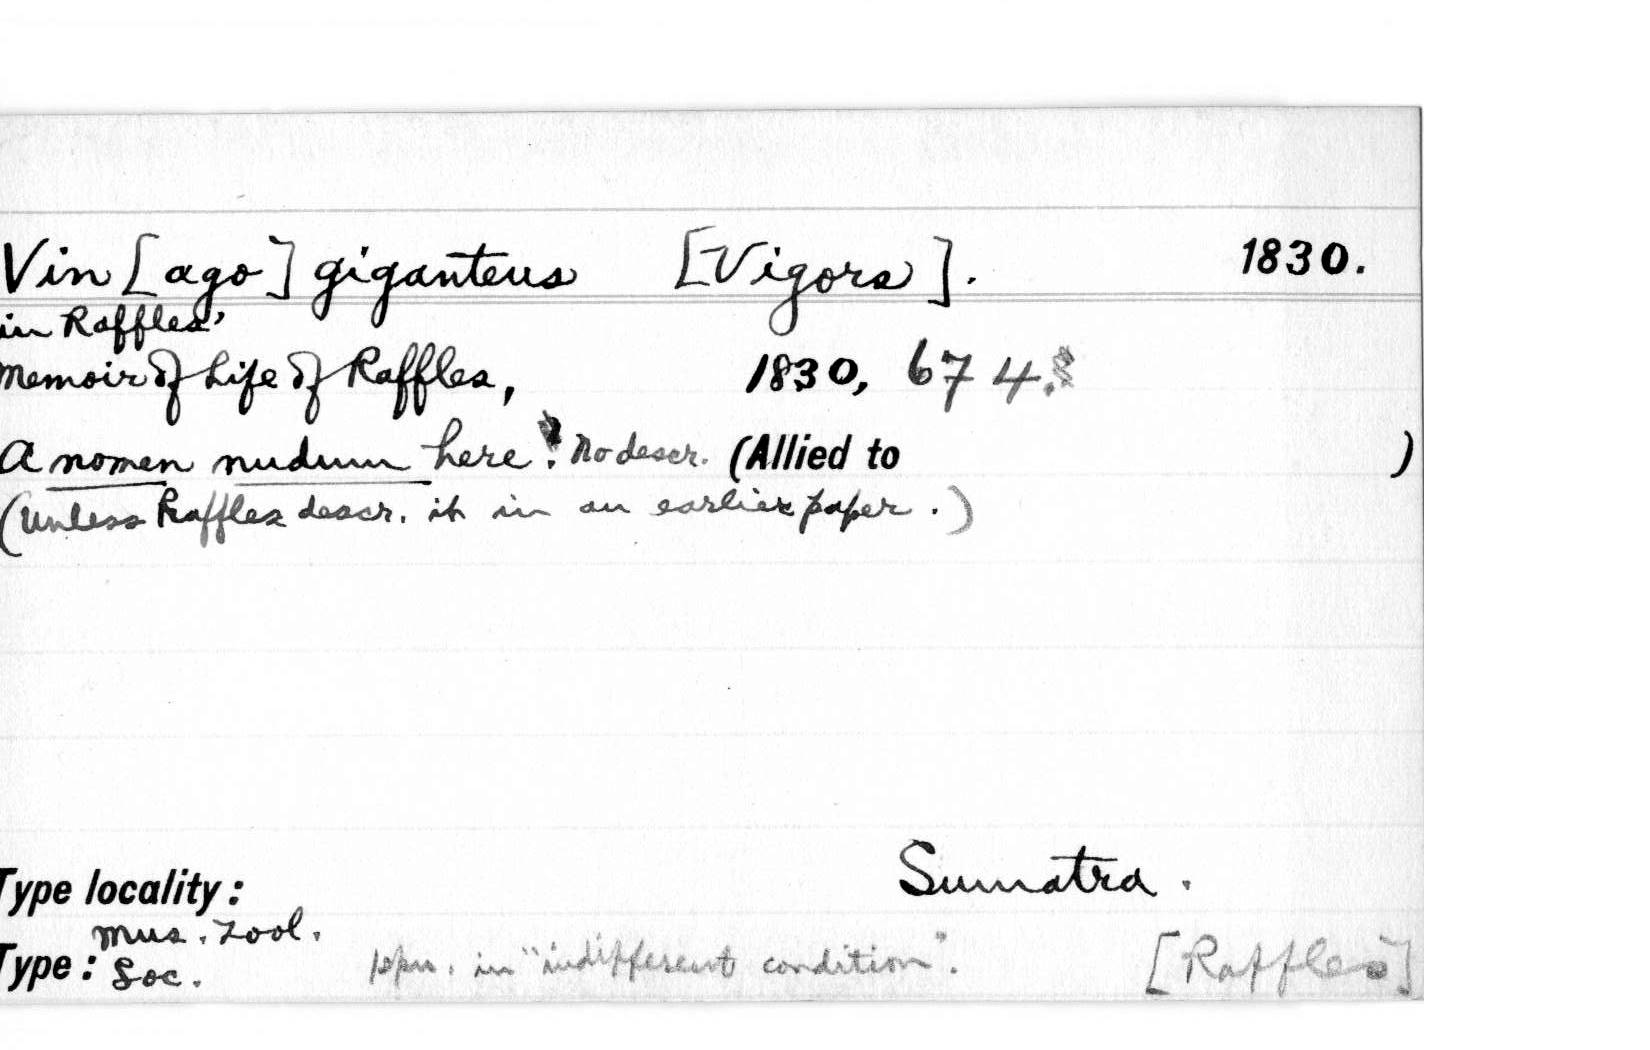 Vin[ago] giganteus [Vigors]. 1830.
in Raffles'
Memoir of Life of Raffles, 1830, 674.
A nomen nudum here. No descr. (Allied to )
(Unless Raffles descr. it in an earlier paper.)
Type locality: Sumatra.
Mus. Zool.
Type: Soc. 1 spn. in "indifferent condition". [Raffles]